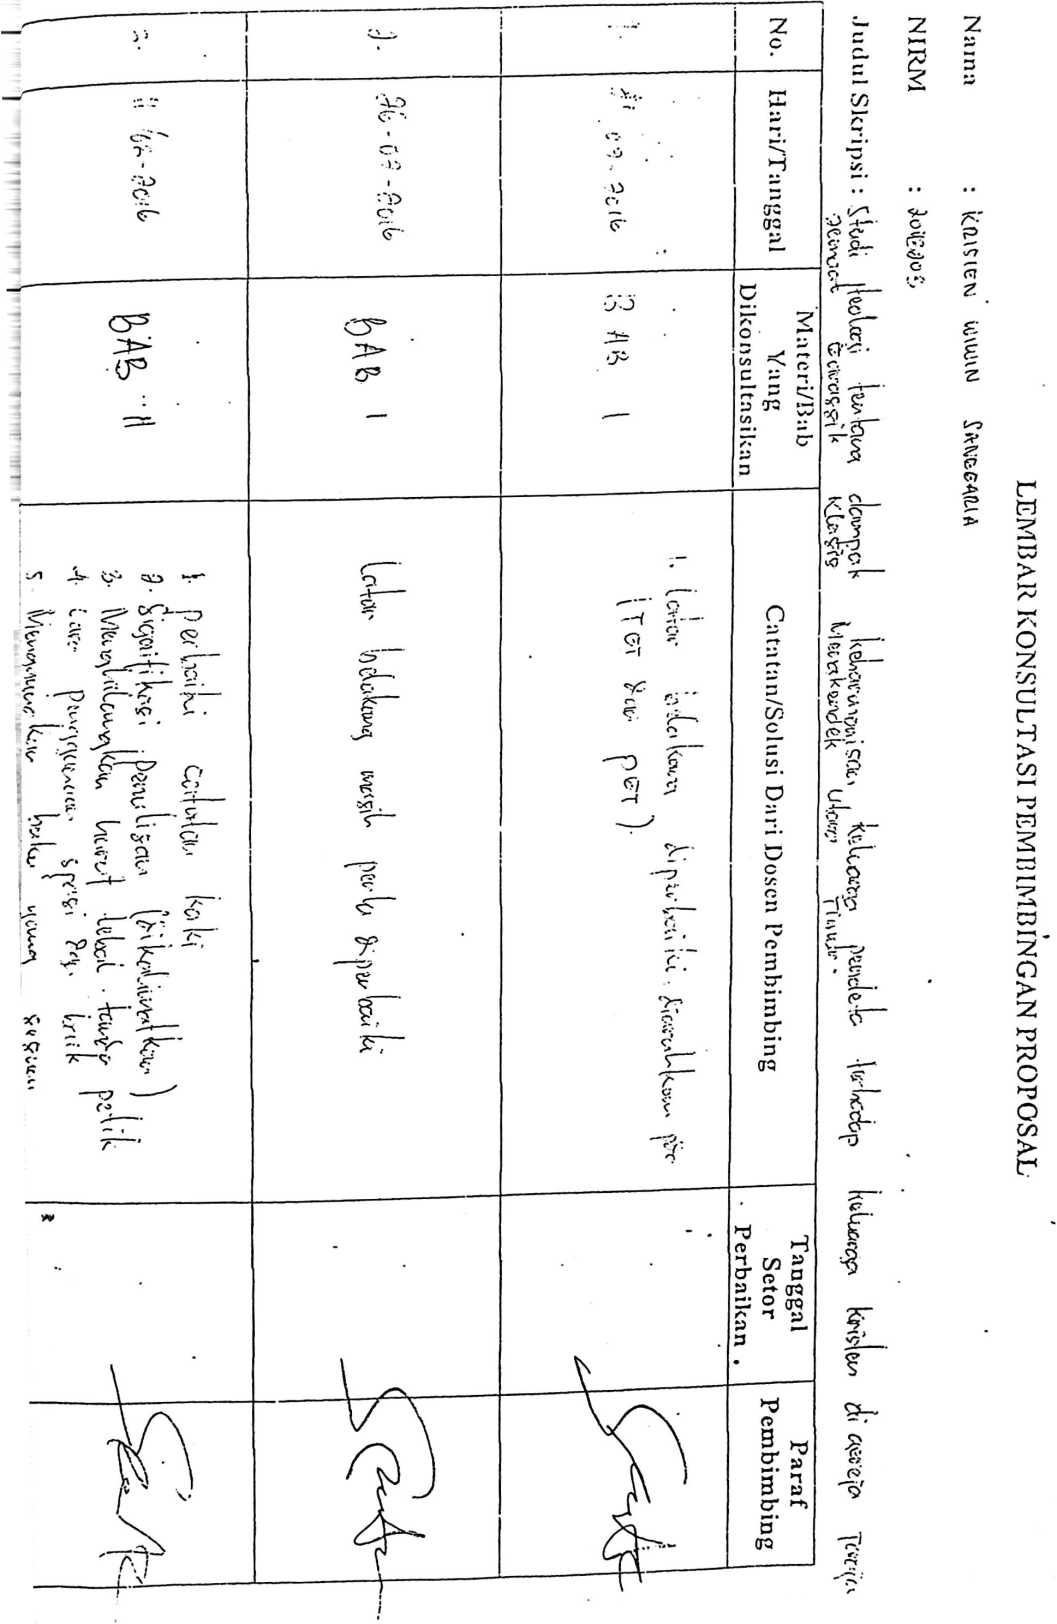 LEMBAR KONSULTASI PEMBIMBINGAN PROPOSAL
Nama : KRISTEN WIWIN SANGGARIA
NIRM :
Judul Skripsi : Studi teologi tentang dampak keharmonisan keluarga pendeta terhadap keluarga kristen di gereja Toraja
Jemaat Klasis Utara Timur.
No. Hari/Tanggal Materi/Bab Yang Dikonsultasikan Catatan/Solusi Dari Dosen Pembimbing Tanggal Setor Perbaikan Paraf Pembimbing
07-2016 BAB I 1. Latar belakang diperbaiki. diarahkan
2. 26-07-2016 BAB I Latar belakang masih perlu diperbaiki
3. BAB II 1. perbaiki catatan kaki
2. Signifikasi penulisan (dikalimatkan)
3. Menghilangkan huruf tebal. tanda petik
4. Cara penggunaan spasi yg. baik
5. buku yang sesuai